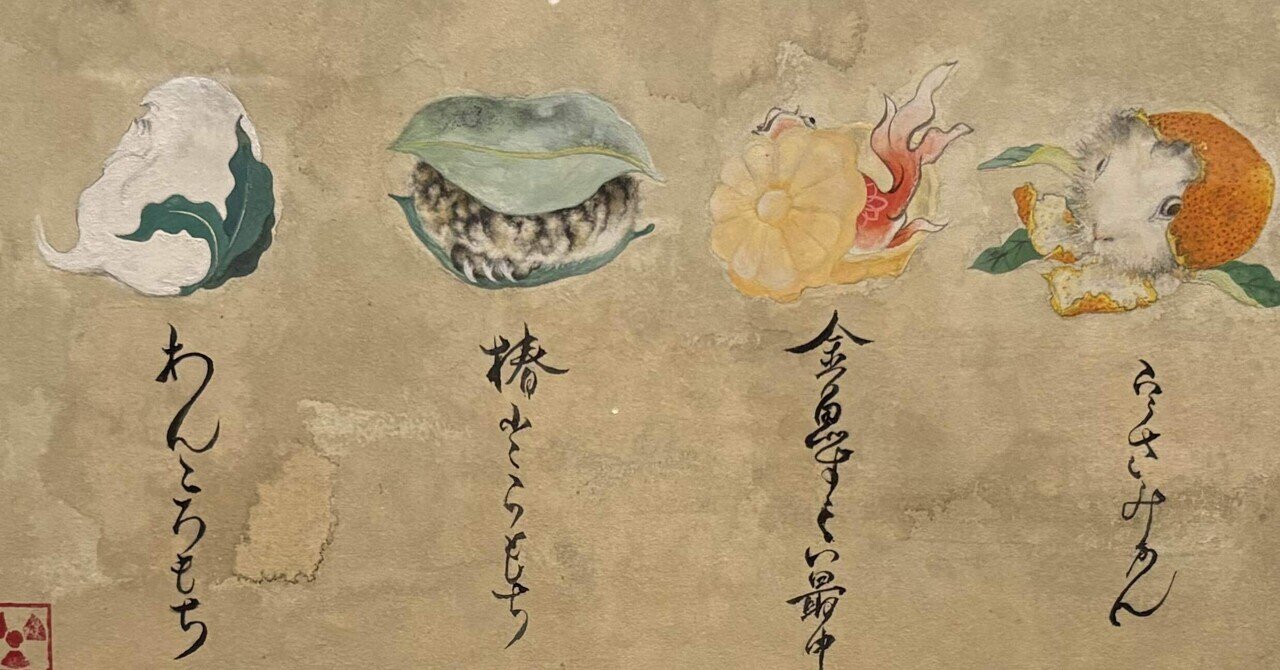 みかん
金魚すくい最中
椿とらもち
わんころもち